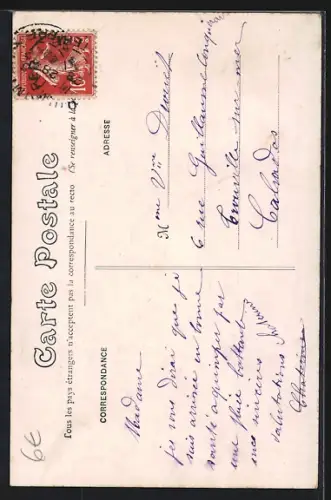 Carte Postale
Tous les pays étrangers n'acceptent pas la correspondance au recto (Se renseigner à la
CORRESPONDANCE
ADRESSE
Madame
je vous dirai que je
suis arrivée en bonne
santé à quimper par
une pluie battante
mes sincères
salutations
M me Vve
6 rue Guillaume le conquérant
Trouville sur mer
Calvados
10
6€